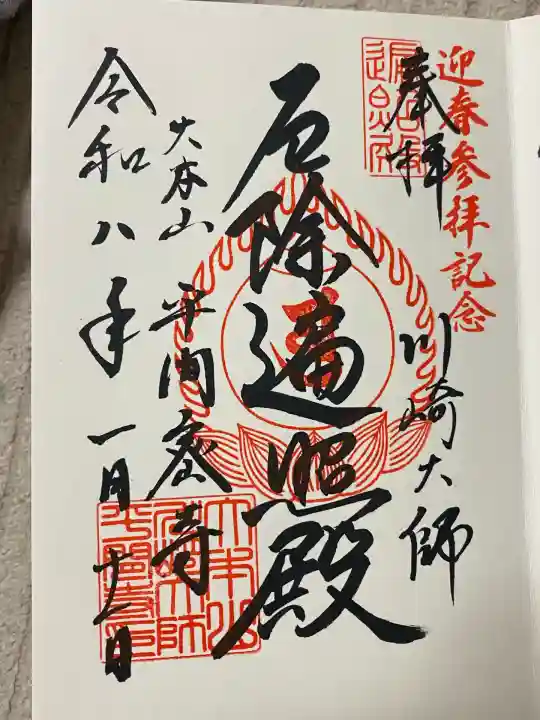 迎春参拝記念
奉拝
川崎大師
厄除遍照殿
大本山
平間密寺
令和八年一月十一日